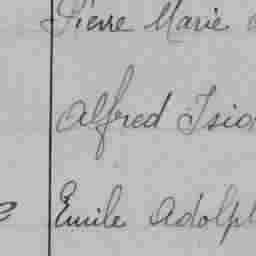 Pierre Marie
Alfred Isio
Emile Adolph